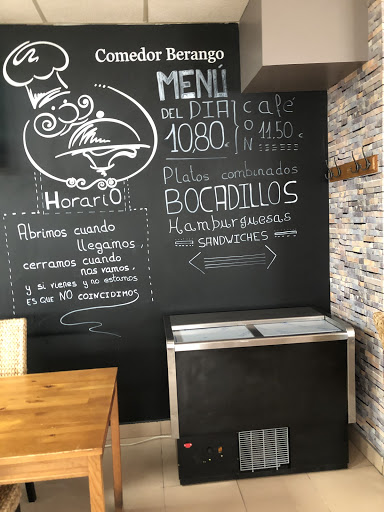 Comedor Berango
MENÚ
DEL DIA
10,80€
Café
CON 11.50€
Platos combinados
BOCADILLOS
Hamburguesas
SANDWICHES
HorariO
Abrimos cuando
llegamos,
cerramos cuando
nos vamos,
y si vienes y no estamos
ES QUE NO COINCIDIMOS